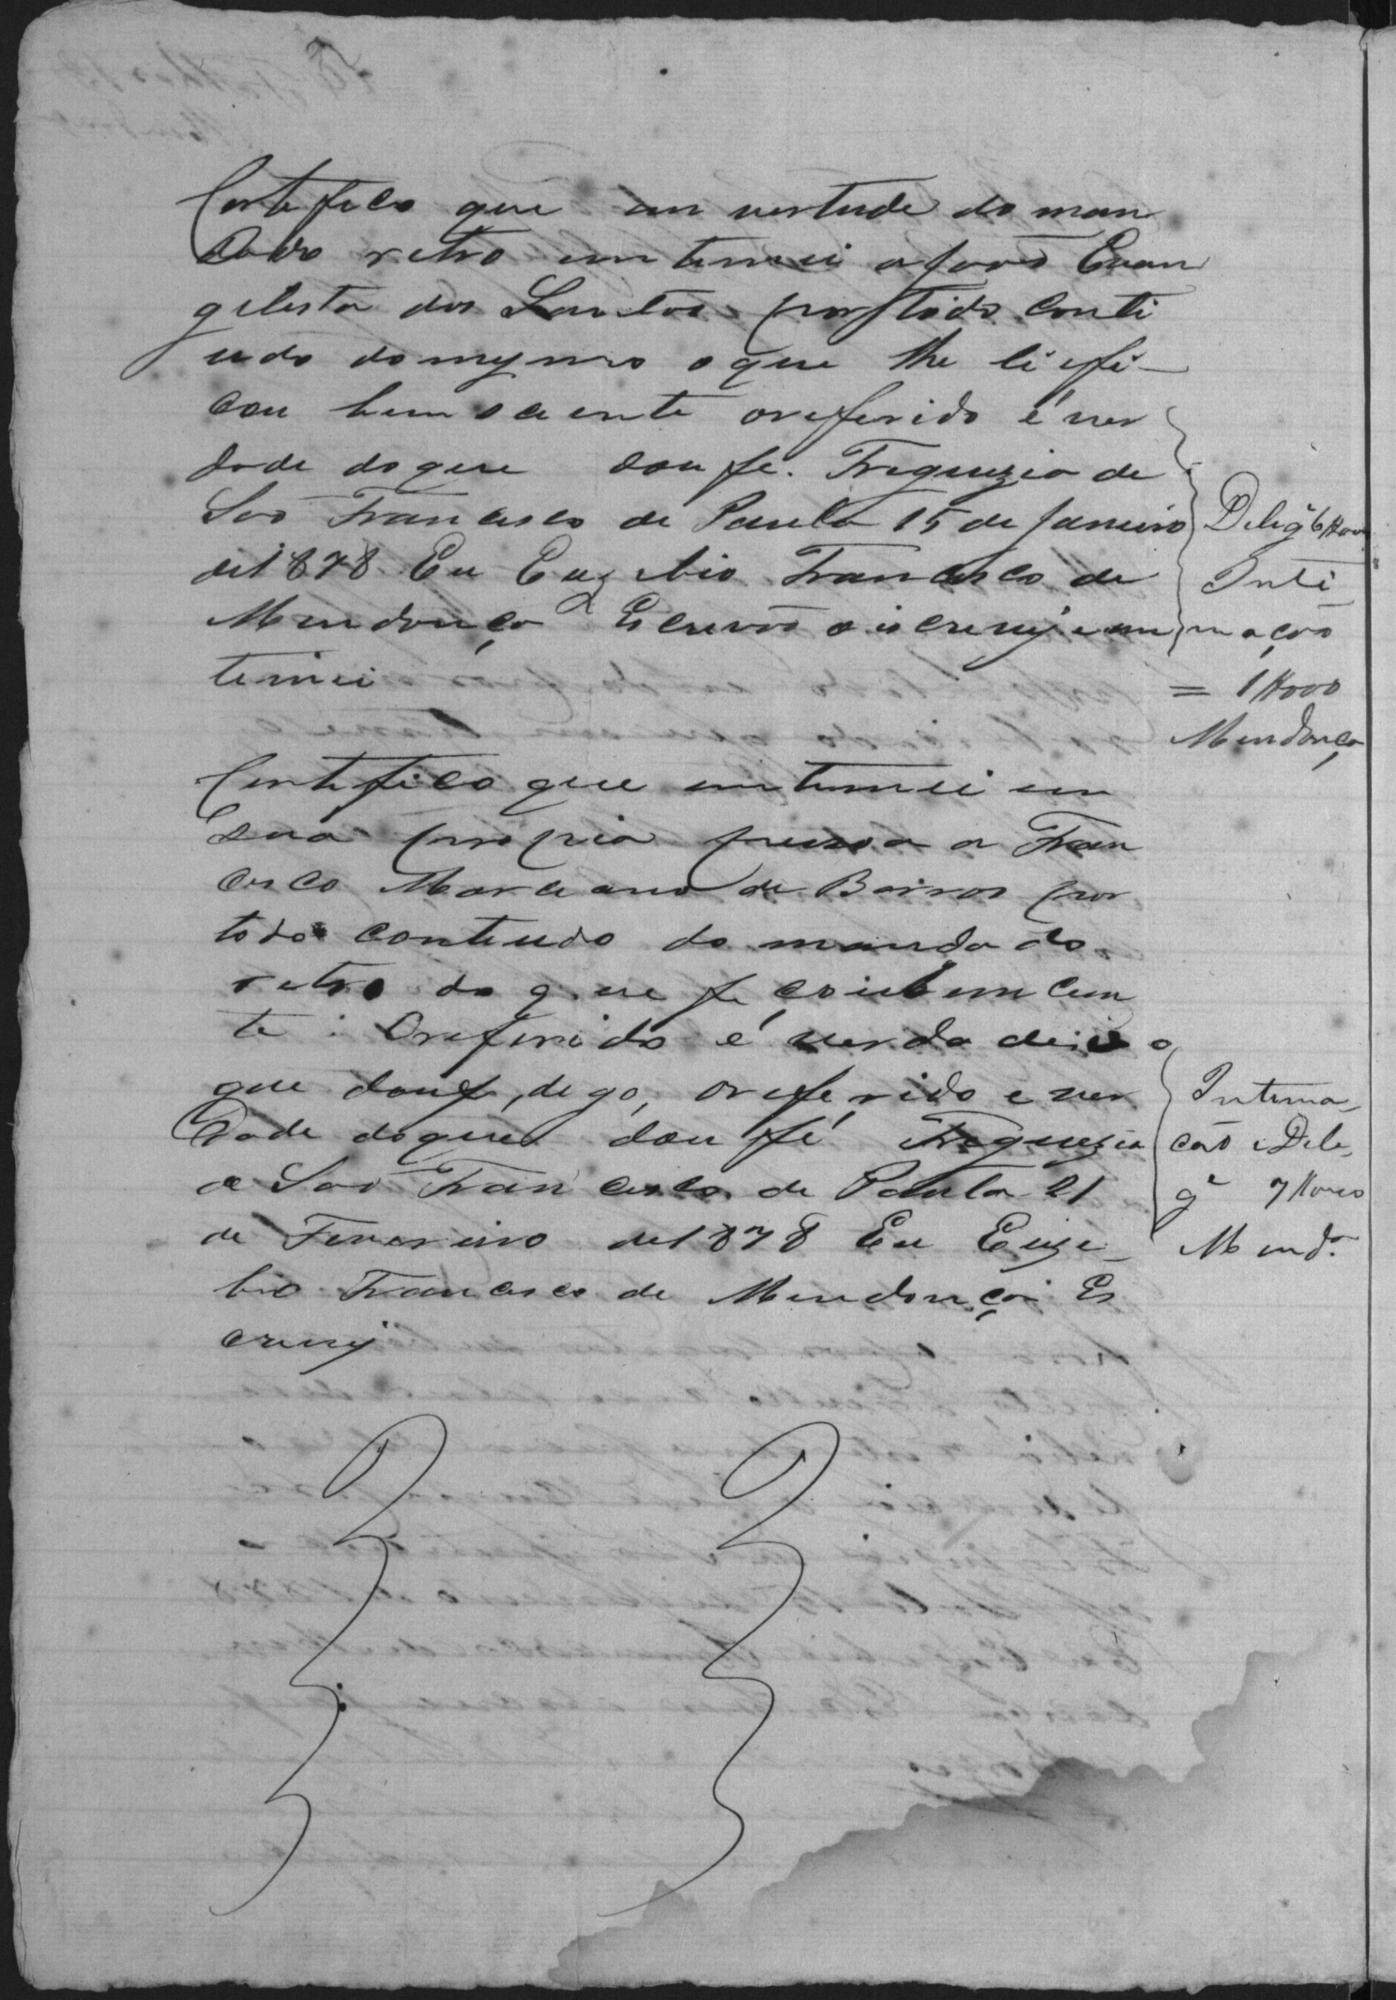 Certefico que em vertude do man
dado retro em temei a joão Evan
gelista dos Santos por todo conti
udo do mesmo o que lhe li e fi-
cou bem sciente o referido é ver
dade do que dou fé. Freguezia de
São Francisco de Paula 15 de janeiro
de 1878 Eu Euzebio Francisco de
Mendonça Escrivão o iscrevy e em
temei
Delig 6$000
Inti
mação
= 1$000
Mendonça
Certefico que em temei em
sua propia pessoa a Fran
cisco Marciano de Barros por
todo conteudo do mandado
retro do que
te. O referido é verda de
que douf, digo, o referido e ver
dade do que dou fé Freguezia
de São Francisco de Paula 21
de Fevereiro de 1878 Eu Euze-
bio Francisco de Mendonça Es
crevy
Intima-
cão e Dele-
g^e 7$000
Mend^a